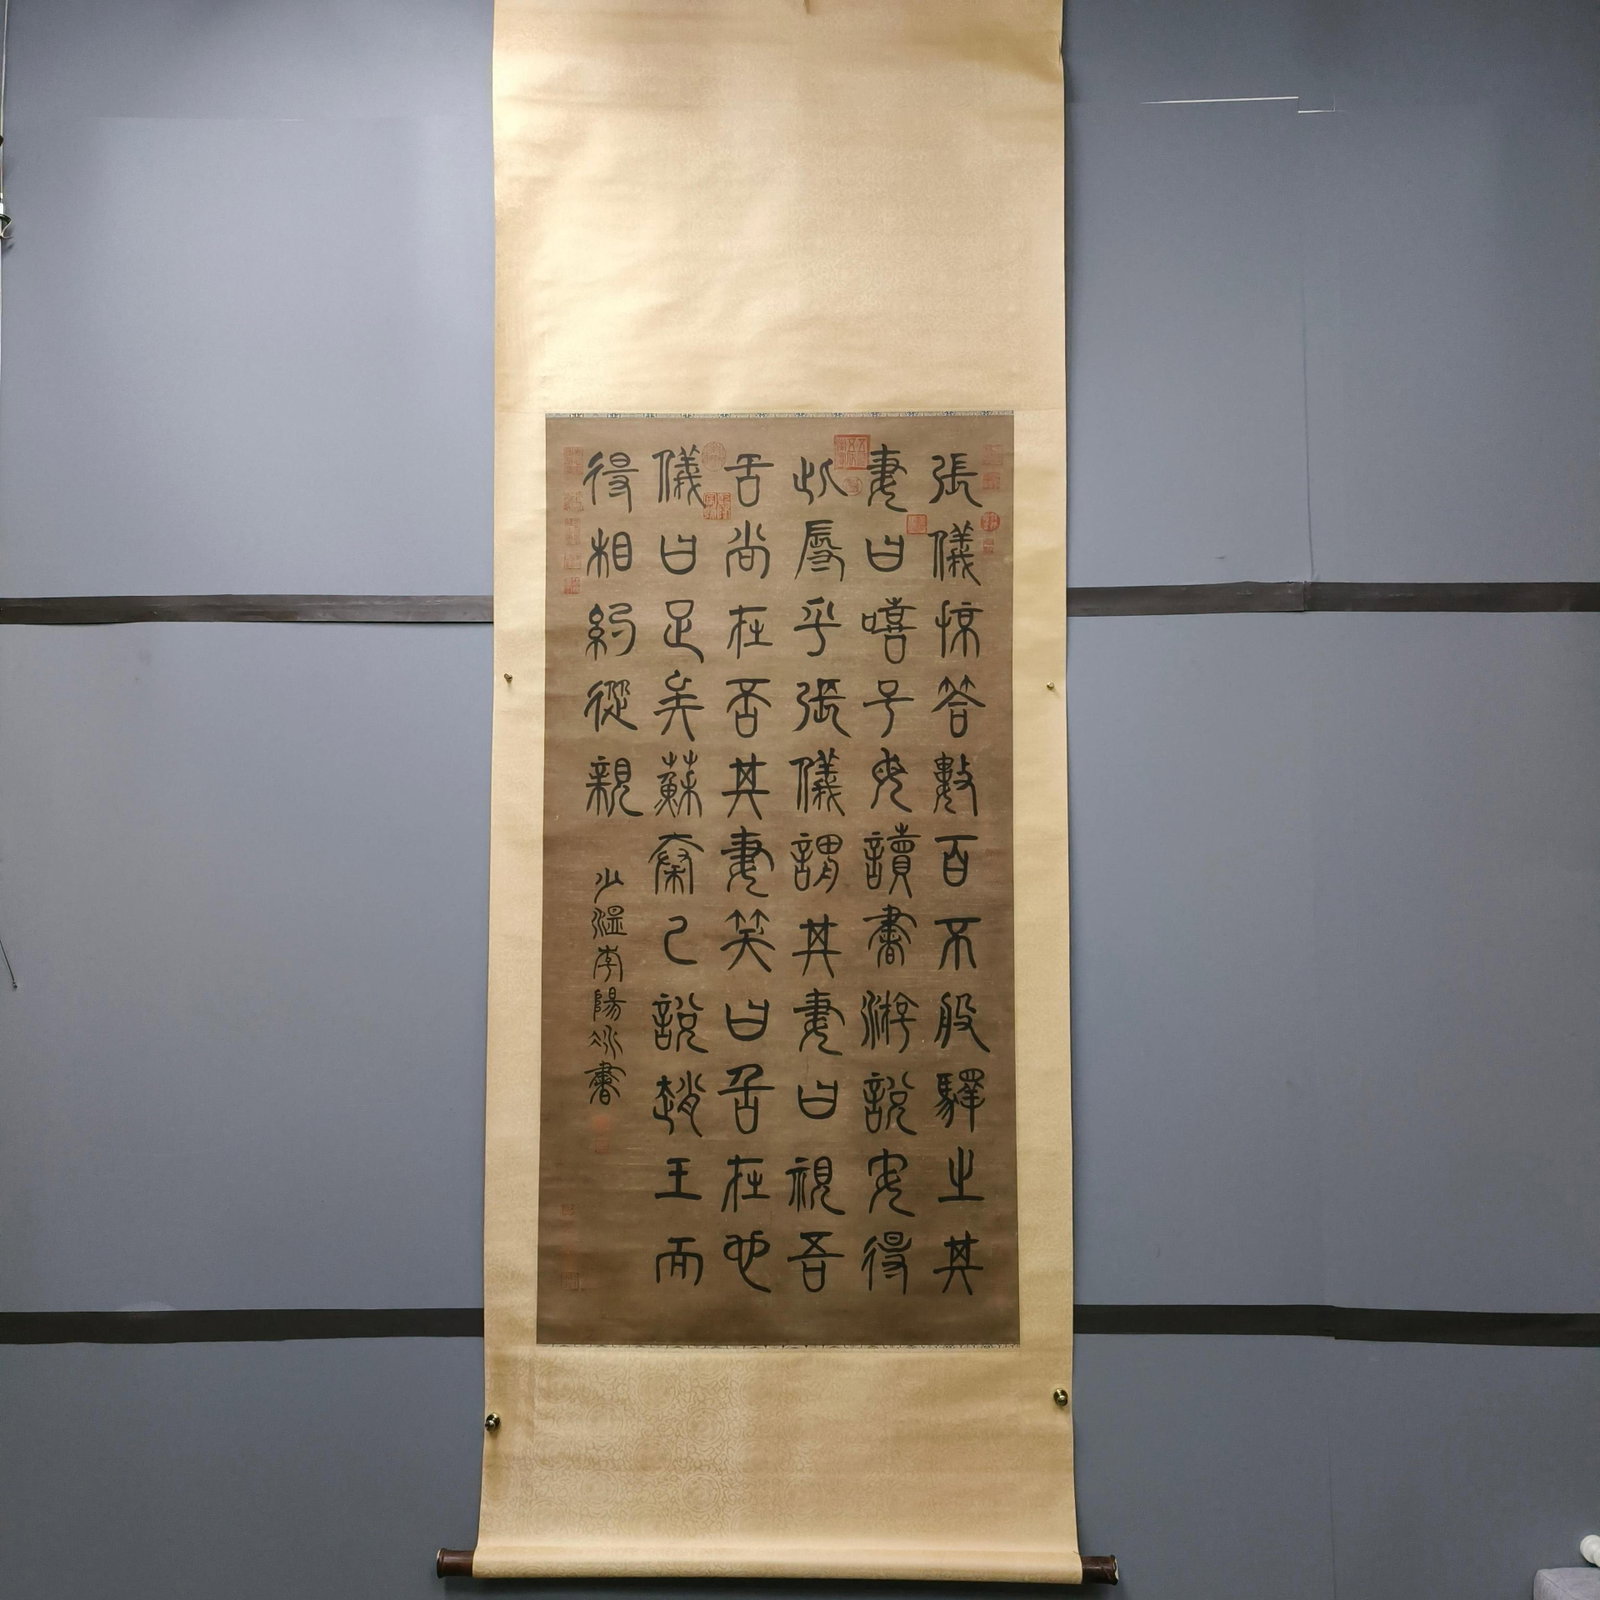 張儀掠笞數百不服醳之其
妻曰嘻子毋讀書游說安得
此辱乎張儀謂其妻曰視吾
舌尚在否其妻笑曰舌在也
儀曰足矣蘇秦已說趙王而
得相約從親
少溫李陽冰書